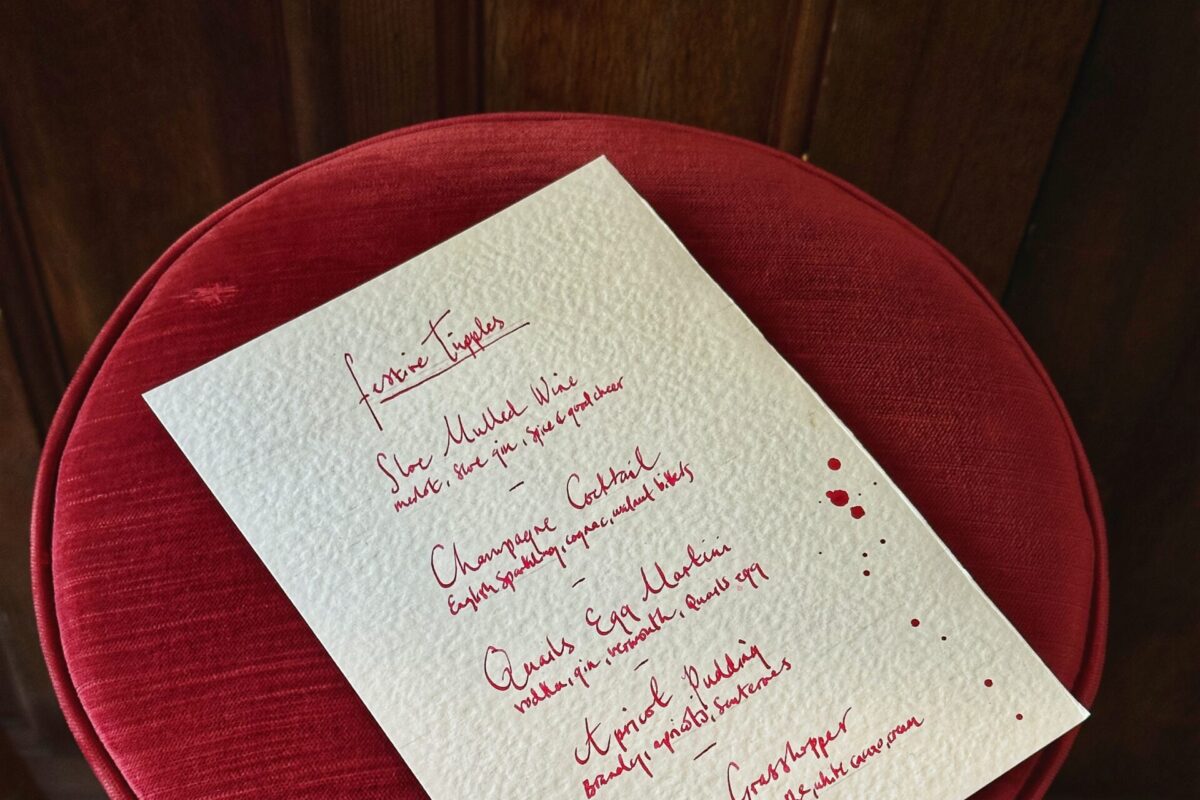 festive Tipples
Sloe Mulled Wine
merlot, sloe gin, spice & good cheer
–
Champagne Cocktail
English Sparkling, cognac, walnut bitters
–
Quails Egg Martini
vodka, gin, vermouth, quails egg
–
Apricot Pudding
Brandy, apricots, Sauternes
–
Grasshopper
white cacao, cream